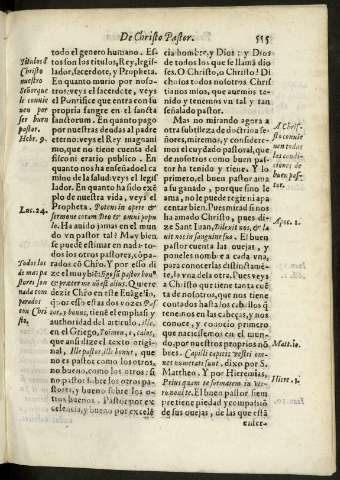 De Christo Pastor.
515
Titulos ð
Christo
nuestro
Señor que
le convie
nen por
ser buen
pastor.
Hebr. 9.
Luc. 24.
Todos los
demas pa
stores son
nada com
parados
con Chris
to,
todo el genero humano. Es
tos son los titulos, Rey, legis-
lador, sacerdote, y Propheta.
En quanto murio por noso-
tros: veys el sacerdote, veys
el Pontifice que entra con su
propria sangre en el sancta
sanctorum. En quanto pago
por nuestras deudas al padre
eterno: veys el Rey magnani
mo, que no tiene cuenta del
fisco ni erario publico. En
quanto nos ha enseñado el ca
mino de la salud: veys el legis
lador. En quanto ha sido exẽ
plo de nuestra vida, veys el
Propheta. Potens in opere &
sermone coram Deo & omni popu
lo. Ha auido jamas en el mun
do vn pastor tal? Muy bien
se puede estimar en nada to-
dos los otros pastores, cõpa-
rados cõ Chrõ. Y por esso di-
ze el muy biẽ: Ego sũ pastor bon9
& præter me nõ est alius. Quere
dezir Christo en este Euãgelio,
que essas dos vozes Pas-
tor, y bonus, tiene el emphasis y
authoridad del articulo, ille,
en el Griego, Poimen, o, calos,
que ansi dize el texto origi-
nal, Ille pastor, ille bonus, que
no es pastor como los otros,
no bueno, como los otros: si
no pastor sobre los otros pa-
stores, y bueno sobre los o-
tros buenos. Pastor por ex-
celencia, y bueno por excelẽ
cia hombre, y Dios: y Dios
de todos los que se llamã dio
ses. O Christo, o Christo! Di-
chosos todos nosotros Chris
tianos mios, que auemos te-
nido y tenemos vn tal y tan
señalado pastor.
Mas no mirando agora a
otra subtileza de doctrina se
ñores, miremos, y considere-
mos el cuydado pastoral, que
de nosotros como buen pastor
ha tenido y tiene. Y lo
primero, el buen pastor ama
a su ganado, porque sino le
ama, no le puede regir ni apa
centar bien. Pues mirad si nos
ha amado Christo, pues di-
ze Sant Iuan, Dilexit nos, & la
uit nos in sanguine suo. El buen
pastor cuenta las ouejas, y
poneles nombre a cada vna,
para conocerlas distinctamẽ-
te, la vna dela otra. Pues veys
a Christo que tiene tanta cuẽ
ta de nosotros, que nos tiene
contados hasta los cabellos q̃
tenemos en las cabeças, y nos
conoce, y conocio primero
que naciessemos en el mun-
do, por nuestros proprios nõ
bres. Capilli capitis vestri om-
nes numerati sunt, dixo por S.
Mattheo. Y por Hieremias,
Priusquam te formarem in vte-
ro noui te. El buen pastor siem
pre tiene piedad y compassiõ
de sus ouejas, de las que està
enfer-
A Chris-
to convie
nen todas
las condi-
ciones de
buen pas-
tor.
Apoc. 1.
Matt. 10.
Hiere. 1.